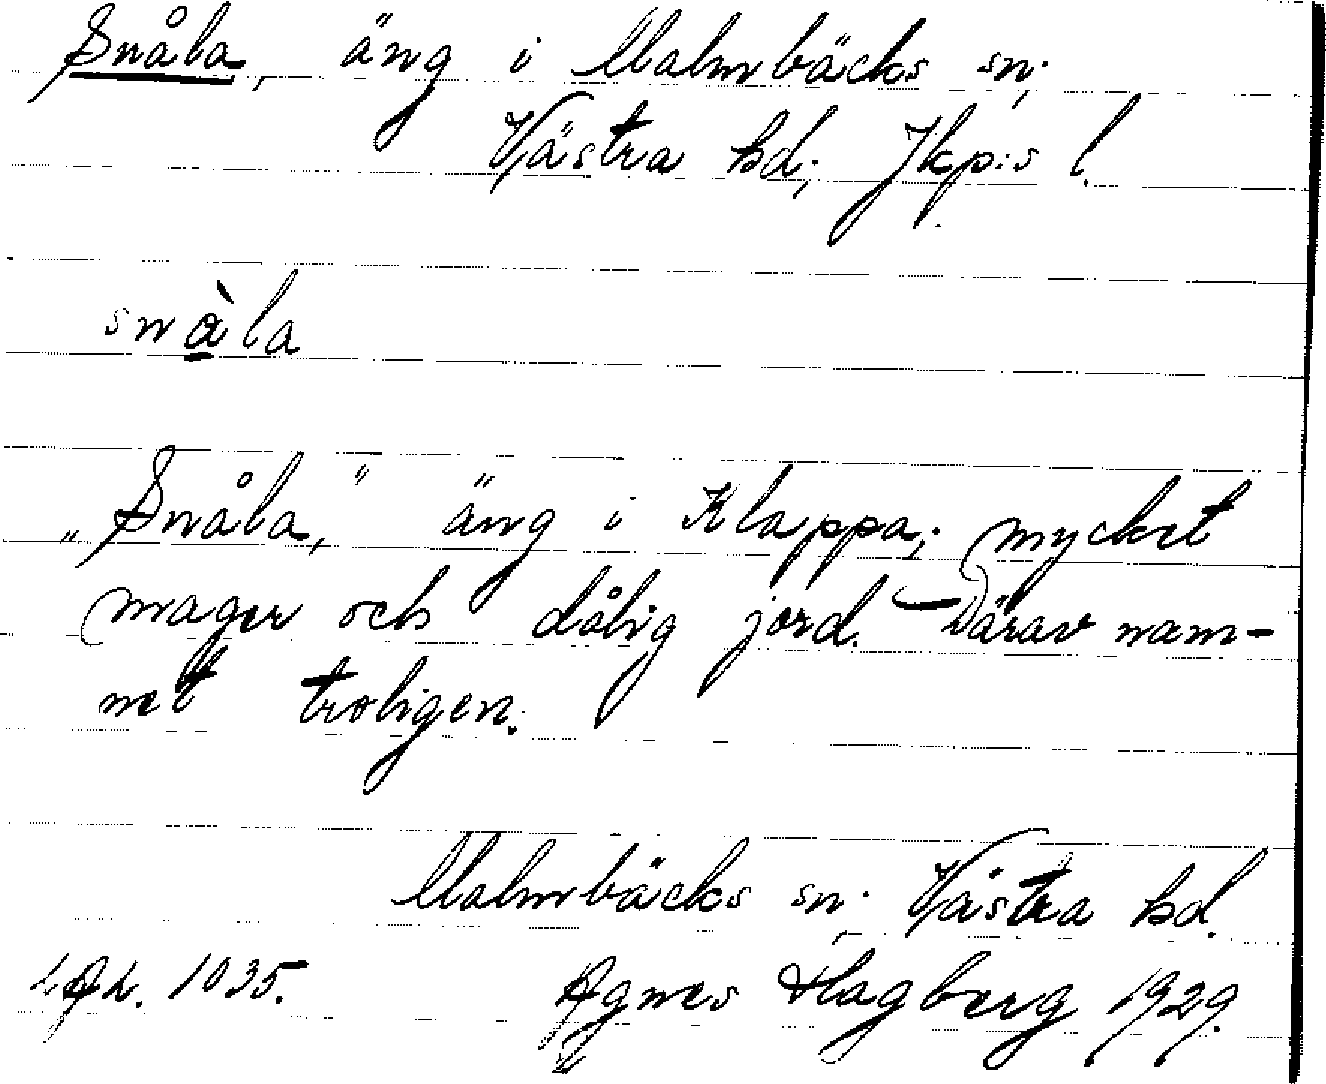 Snåla, äng i Malmbäcks sn;
Västra hd; Jkp:s l.
snàla
"Snåla," äng i Klappa; mycket
mager och dålig jord. Därav nam-
net troligen.
Malmbäcks sn; Västra hd.
1035. Agnes Hagberg 1929.